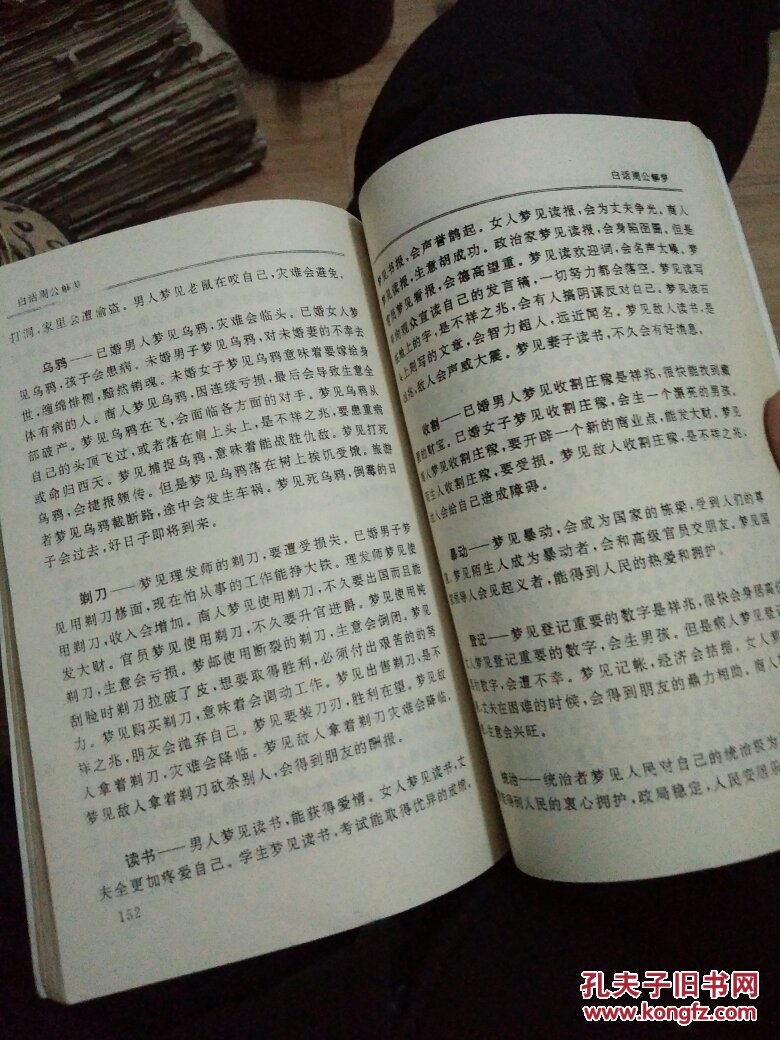 白话周公解梦
打洞,家里会遭偷盗。男人梦见老鼠在咬自己,灾难会避免。
乌鸦——已婚男人梦见乌鸦,灾难会临头。已婚女人梦
见乌鸦,孩子会患病。未婚男子梦见乌鸦,对未婚妻的不幸去
世,缠绵悱恻,黯然销魂。未婚女子梦见乌鸦意味着要嫁给身
体有病的人。商人梦见乌鸦,因连续亏损,最后会导致生意全
部破产。梦见乌鸦在飞,会面临各方面的对手。梦见乌鸦从
自己的头顶飞过,或者落在肩上头上,是不祥之兆,要患重病
或命归西天。梦见捕捉乌鸦,意味着能战胜仇敌。梦见打死
乌鸦,会捷报频传。但是梦见乌鸦落在树上挨饥受饿。旅游
者梦见乌鸦截断路,途中会发生车祸。梦见死乌鸦,倒霉的日
子会过去,好日子即将到来。
剃刀——梦见理发师的剃刀,要遭受损失。已婚男子梦
见用剃刀修面,现在怕从事的工作能挣大钱。理发师梦见使
用剃刀,收入会增加。商人梦见使用剃刀,不久要出国而且能
发大财。官员梦见使用剃刀,不久要升官进爵。梦见使用钝
剃刀,生意会亏损。梦邮使用断裂的剃刀,生意会倒闭。梦见
刮脸时剃刀拉破了皮,想要取得胜利,必须付出艰苦的的努
力。梦见购买剃刀,意味着会调动工作。梦见出售剃刀,是不
祥之兆,朋友会抛弃自己。梦见要装刀刃,胜利在望。梦见敌
人拿着剃刀,灾难会降临。梦见敌人拿着剃刀灾难会降临,
梦见敌人拿着剃刀砍杀别人,会得到朋友的酬报。
读书——男人梦见读书,能获得爱情。女人梦见读书,丈
夫全更加疼爱自己。学生梦见读书,考试能取得优异的成绩。
152
白话周公解梦
梦见书报,会声誉鹊起。女人梦见读报,会为丈夫争光。商人
梦见读报,生意胡成功。政治家梦见读报,会身陷囹圄。但是
梦见看报,会德高望重。梦见读欢迎词,会名声大噪。梦见
观众宣读自己的发言稿,一切努力都会落空。梦见读写
上的字,是不祥之兆,会有人搞阴谋反对自己。梦见读石
上刻写的文章,会智力超人,远近闻名。梦见敌人读书,是
兆,敌人会声威大震。梦见妻子读书,不久会有好消息。
收割——已婚男人梦见收割庄稼是祥兆,很快能找到藏
的财宝。已婚女子梦见收割庄稼,会生一个漂亮的男孩。
人梦见收割庄稼,要开辟一个新的商业点,能发大财。梦见
生人收割庄稼,要受损。梦见敌人收割庄稼,是不祥之兆,
人会给自己造成障碍。
暴动——梦见暴动,会成为国家的栋梁,受到人们的尊
梦见陌生人成为暴动者,会和高级官员交朋友。梦见国
领导人会见起义者,能得到人民的热爱和拥护。
登记——梦见登记重要的数字是祥兆,很快会身居高位
女人梦见登记重要的数字,会生男孩。但是病人梦见登
数字,会遭不幸。梦见记帐,经济会拮据。女人梦
丈夫在困难的时候,会得到朋友的鼎力相助。商人
生意会兴旺。
统治——统治者梦见人民对自己的统治极为
得到人民的衷心拥护,政局稳定,人民安居乐
孔夫子旧书网
www.kongfz.com